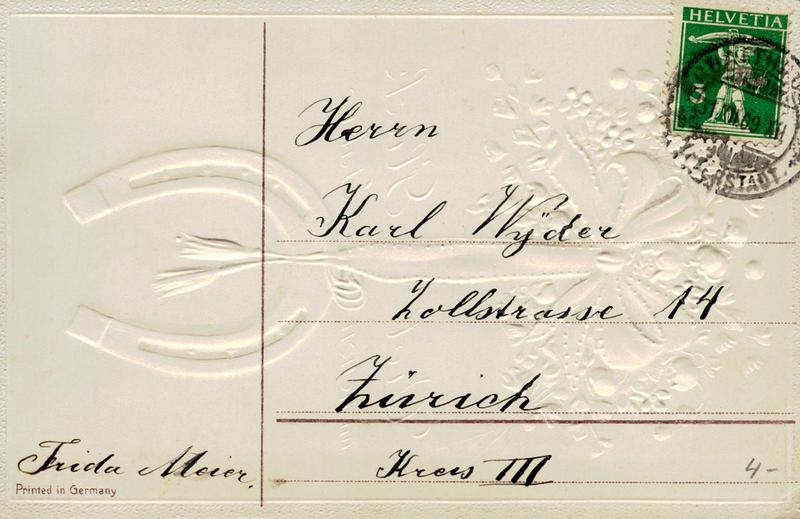 HELVETIA
5
Herrn
Karl Wÿder
Zollstrasse 14
Zürich
Kreis III
Frida Meier.
Printed in Germany
4-